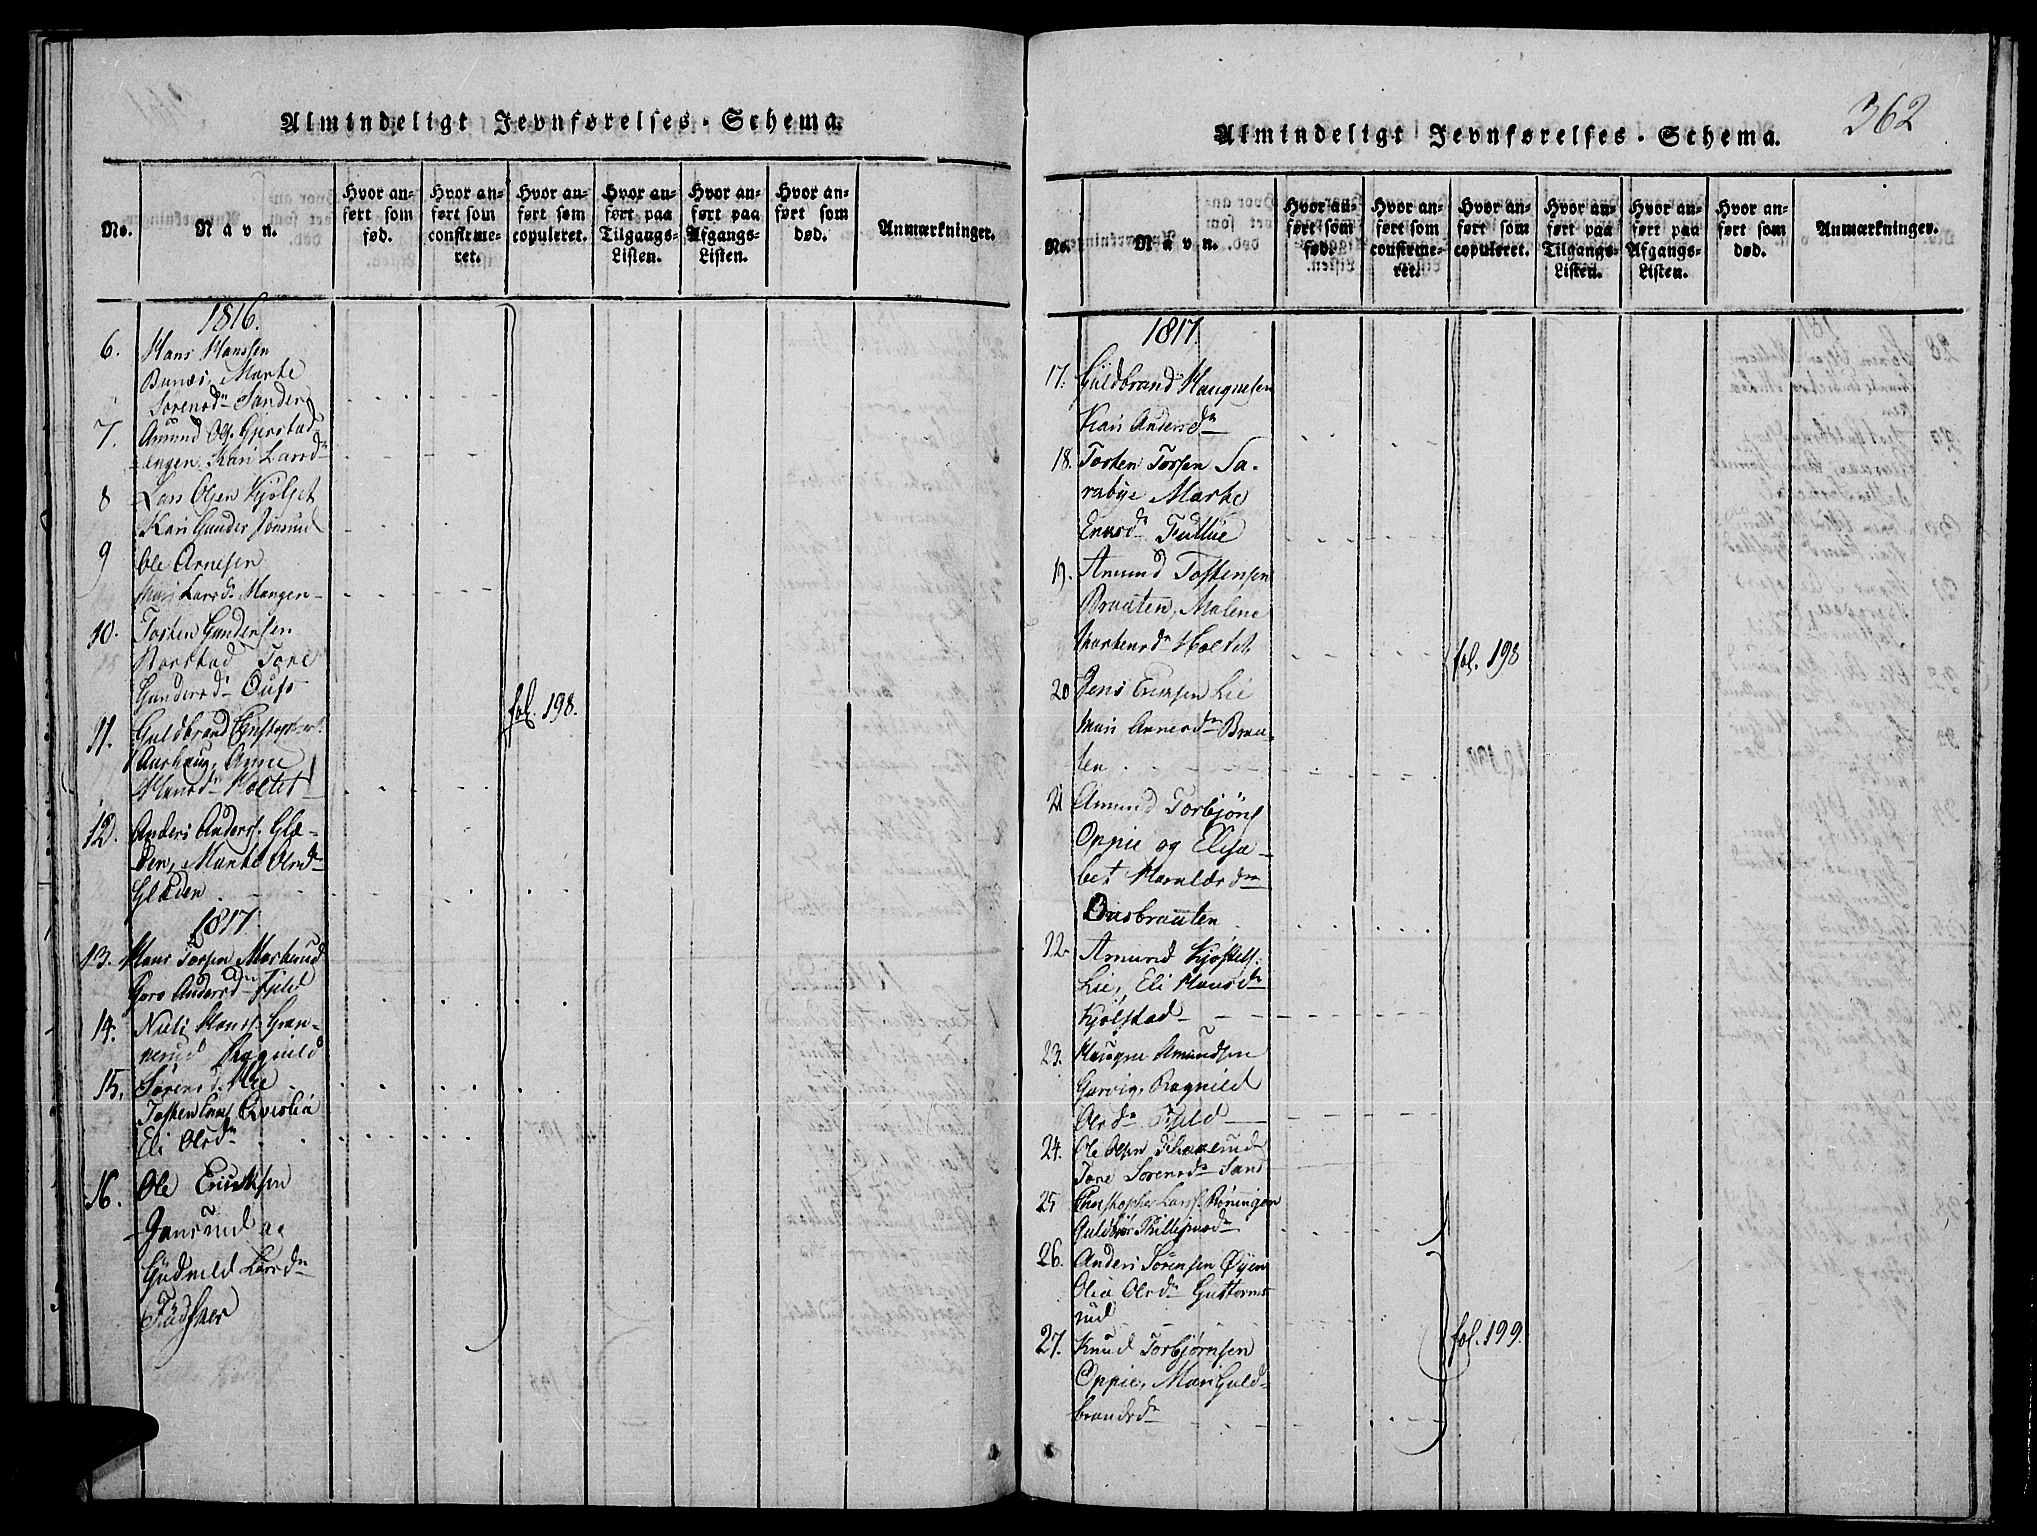 Almindeligt Jevnførelses-Schema.
No.
Navn.
Hvor an-
ført som
fød.
Hvor an-
ført som
confirme-
ret.
Hvor an-
ført som
copuleret.
Hvor an-
ført paa
Tilgangs-
Listen.
Hvor an-
ført paa
Afgangs-
Listen.
Hvor an-
ført som
død.
Anmærkninger.
1816.
6. Hans Hanssen
Bunæs, Marte
Sørensdn Sander
7. Amund Ols. Gjerstad-
engen. Kari Larsdn
8 Lars Olsen Kjølset
Kari Gunder
9 Ole Arnesen
Mari Larsdn Mangen
10. Tosten Gundersen
Tone
Gundersdn Ousb
11. Guldbrand Christophers.
Aurhaug, Anne
Hansdn Holtet
fol. 198.
12. Anders Anderss. Glæ-
den, Marte Olsdn
Glæden
1817.
13. Hans Torsen
Goro Andersdn Fjeld
14. Niels Hanss. Gran-
nerud Ragnild
15. Sørensd. Lie
Tosten Qvislia
Eli Olsdn
16. Ole Ericksen
Jonsrud og
Gudnild Larsdn
362
Almindeligt Jevnførelses-Schema.
No.
Navn.
Hvor an-
ført som
fød.
Hvor an-
ført som
confirme-
ret.
Hvor an-
ført som
copuleret.
Hvor an-
ført paa
Tilgangs-
Listen.
Hvor an-
ført paa
Afgangs-
Listen.
Hvor an-
ført som
død.
Anmærkninger.
1817.
17. Guldbrand Haugnesen
Kari Andersdn
18. Tosten Torsen Sa-
rabye Marte
Enersdn
19. Amund Tostensen
Braaten, Malene
Mortensdn Holtet
fol. 198
20 Jens Ericksen Lie
Mari Arnesdn Braa-
ten
21 Amund Torbjøns
Oppie og Elisa-
bet Haraldsdn
Ousbraaten
22. Amund Kjøstels.
Lie, Eli Hansdn
Kjølstad
23. Haagne Amundsen
Garvig, Ragnild
Olsdn Fjeld
24. Ole Olsen
Tone Sørensdn Sand
25 Christopher Larss. Røningen
Guldbør Phillipsdn
26. Anders Sørensen Øyen
Olia Olsdn Guttorms
rud
fol. 199.
27. Knud Torbjørnsen
Oppie, Mari Guld-
brandsdn